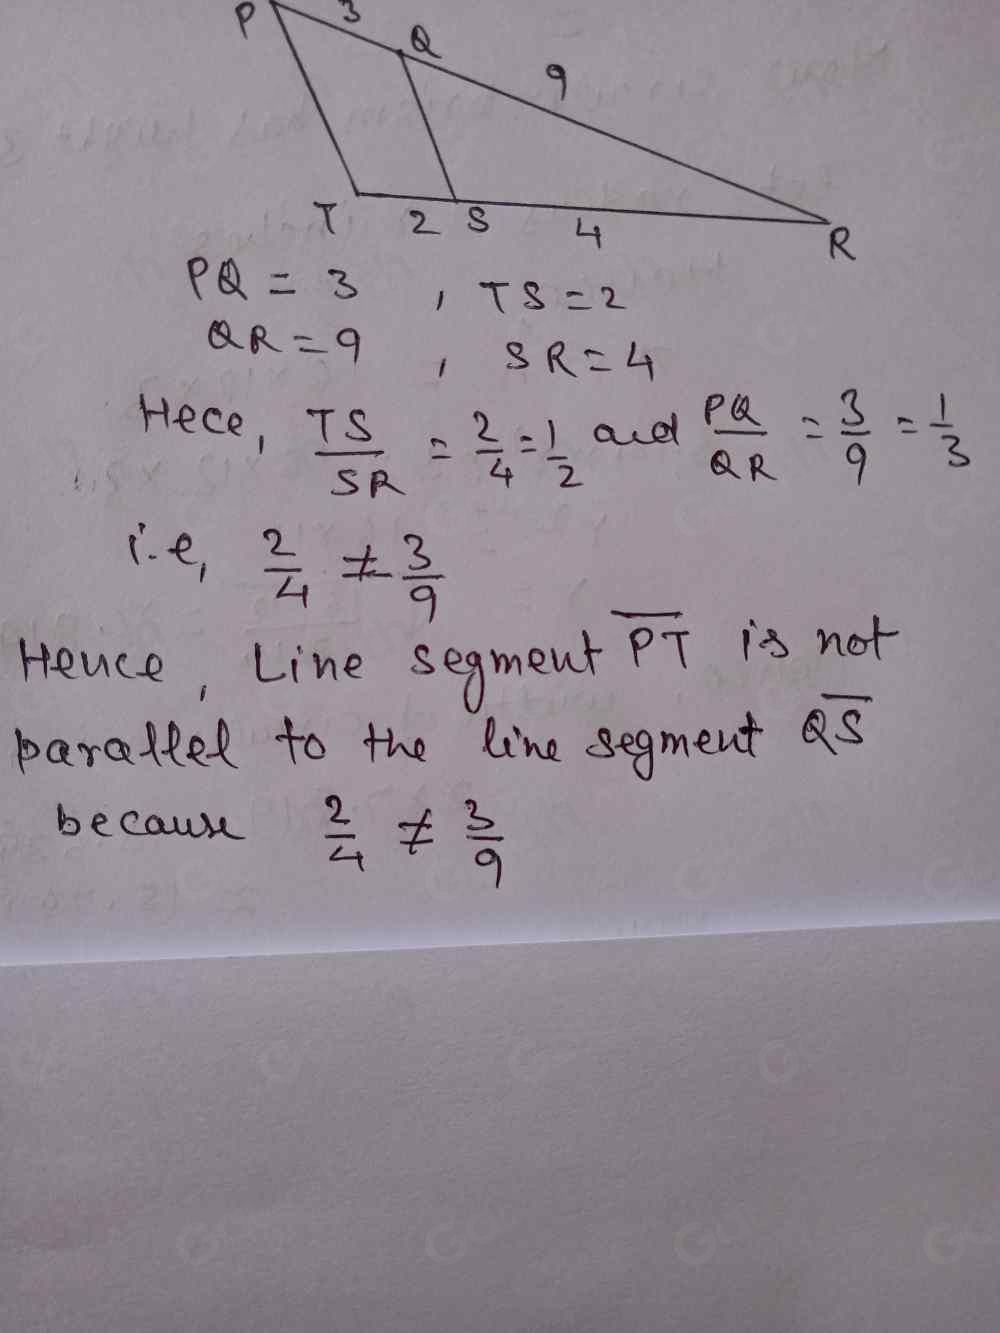 P 3 Q 9
T 2 S 4 R
PQ = 3 , TS = 2
QR = 9 , SR = 4
Hece, TS/SR = 2/4 = 1/2 aud PQ/QR = 3/9 = 1/3
i.e, 2/4 ≠ 3/9
Hence, Line segment P̅T̅ is not
parallel to the line segment Q̅S̅
because 2/4 ≠ 3/9